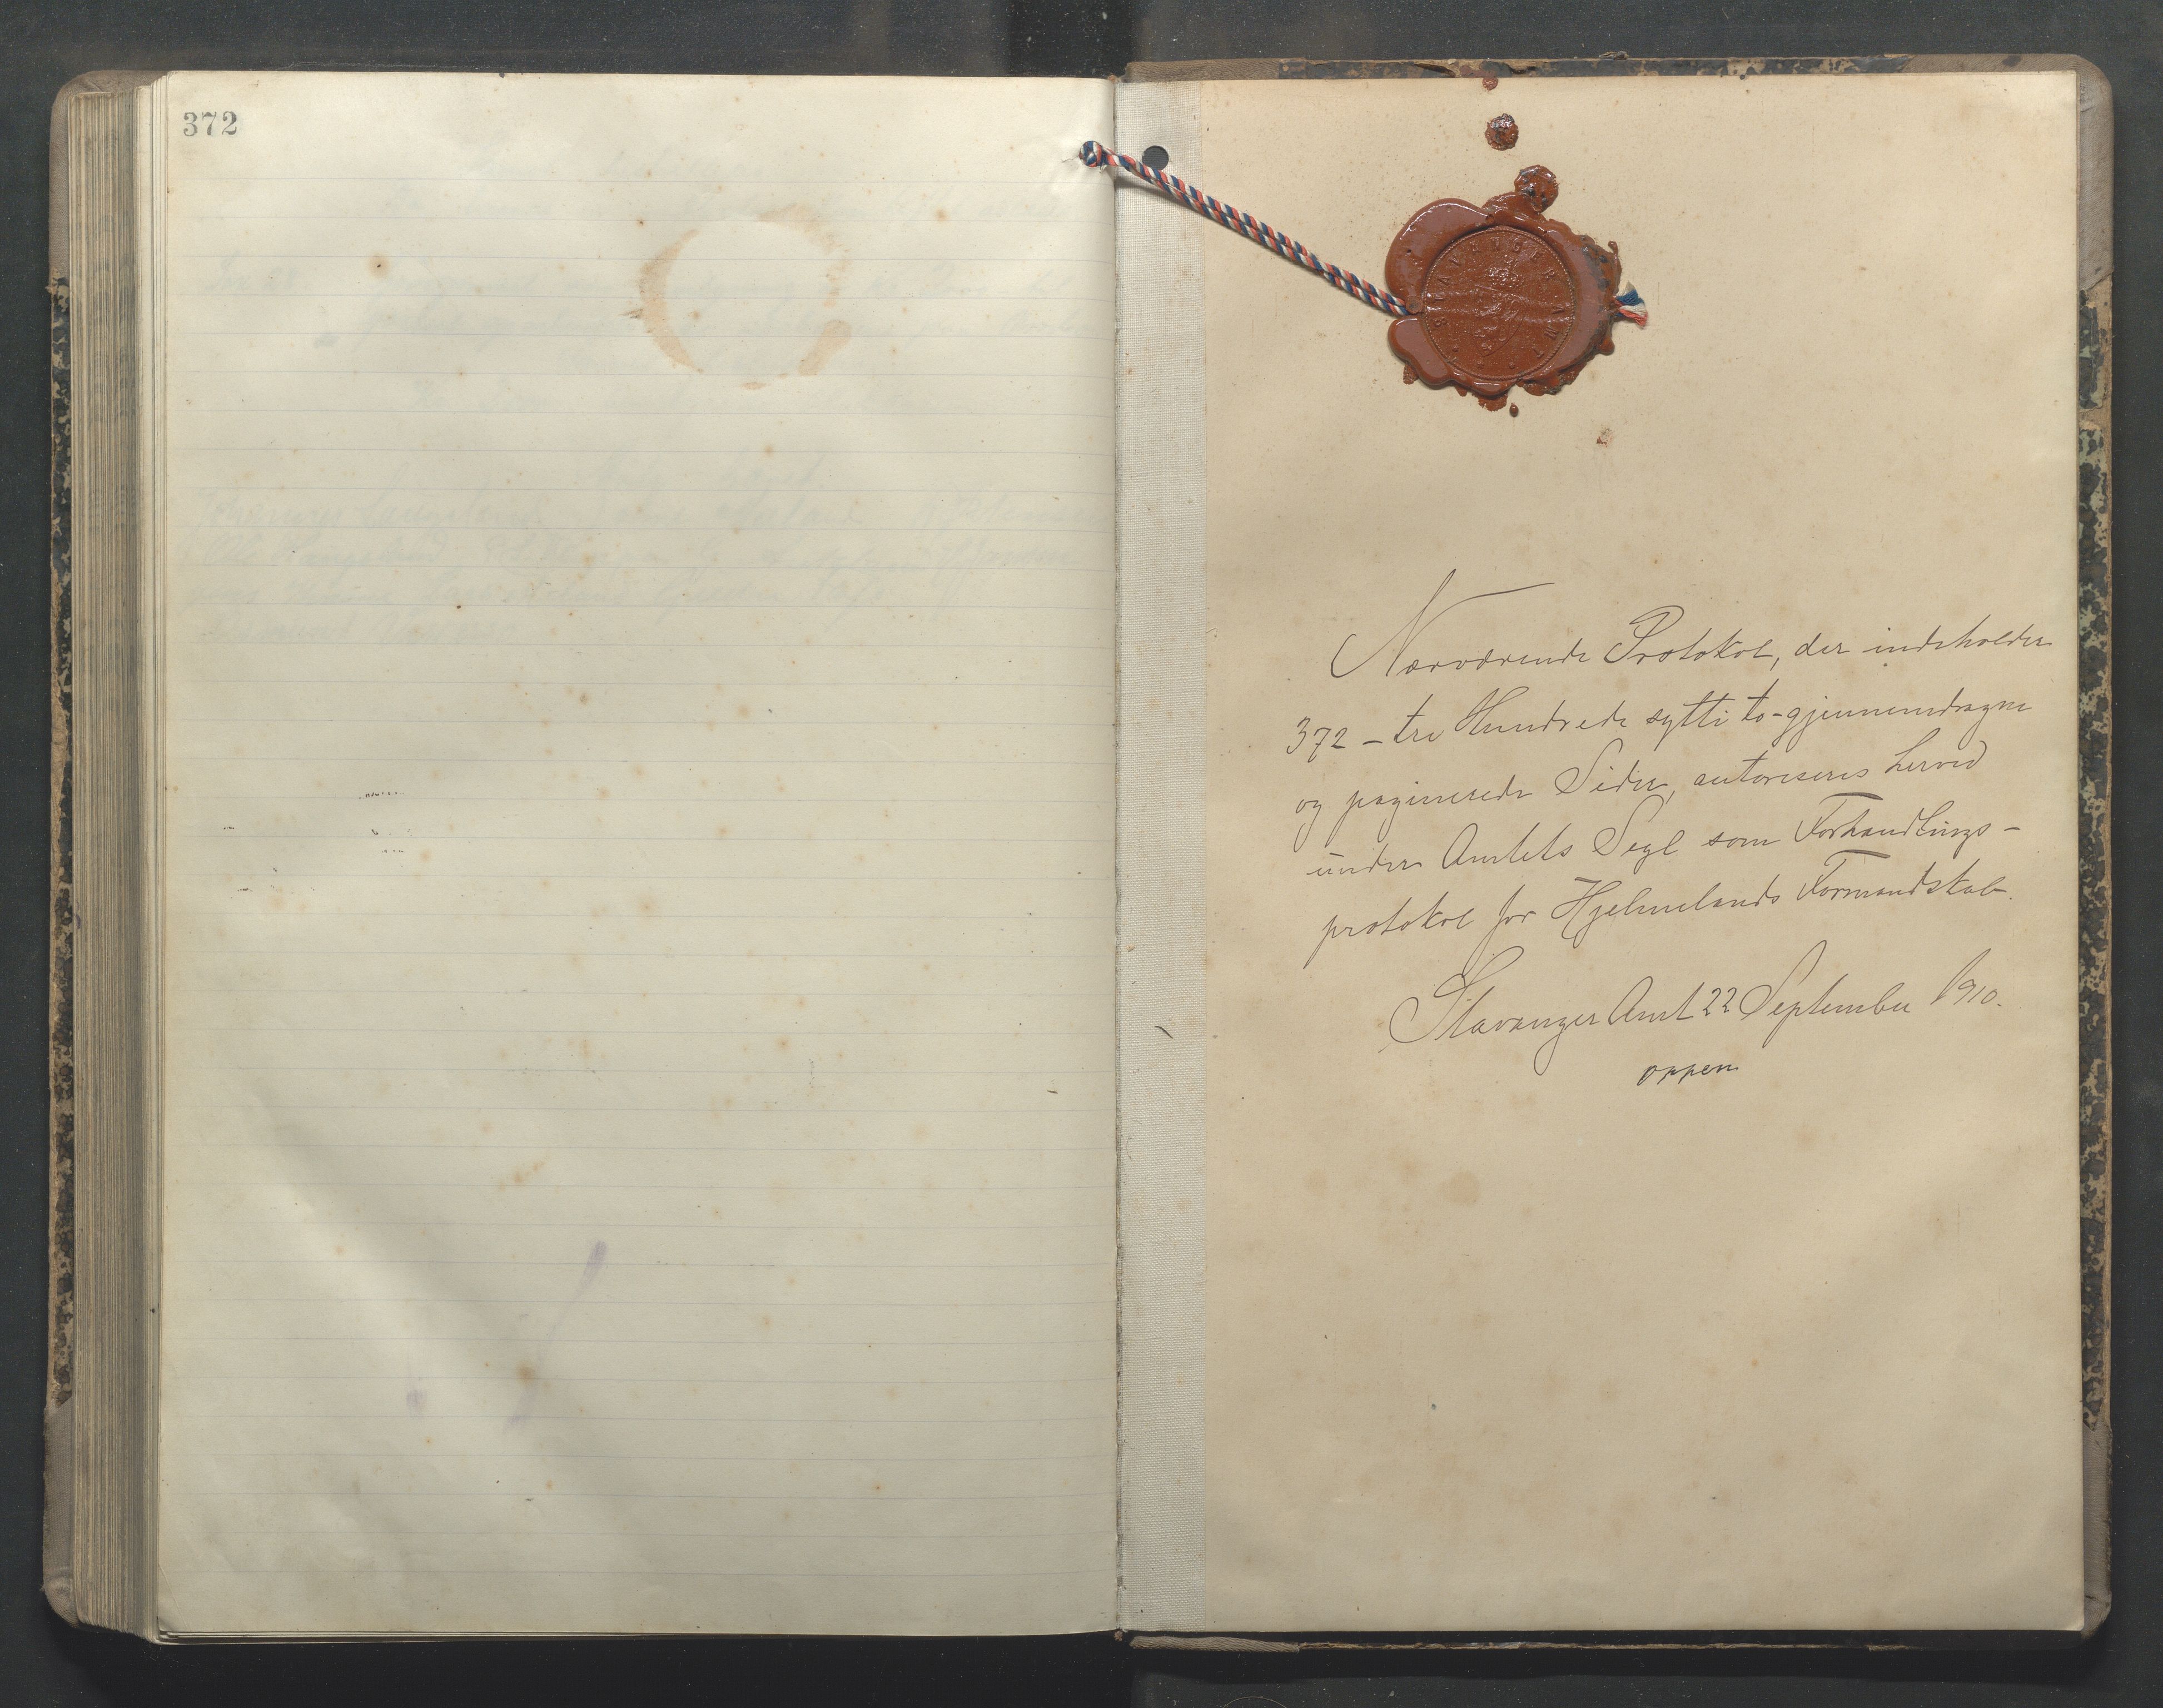 372
STAVANGER AMT
Nærværende Protokol, der indeholder
372 – tre Hundrede sytti to – gjennemdragne
og paginerede Sider, autoriseres herved
under Amtets Segl som Forhandlings-
protokol for Hjelmelands Formandskab.
Stavanger Amt 22 September 1910.
Oppen